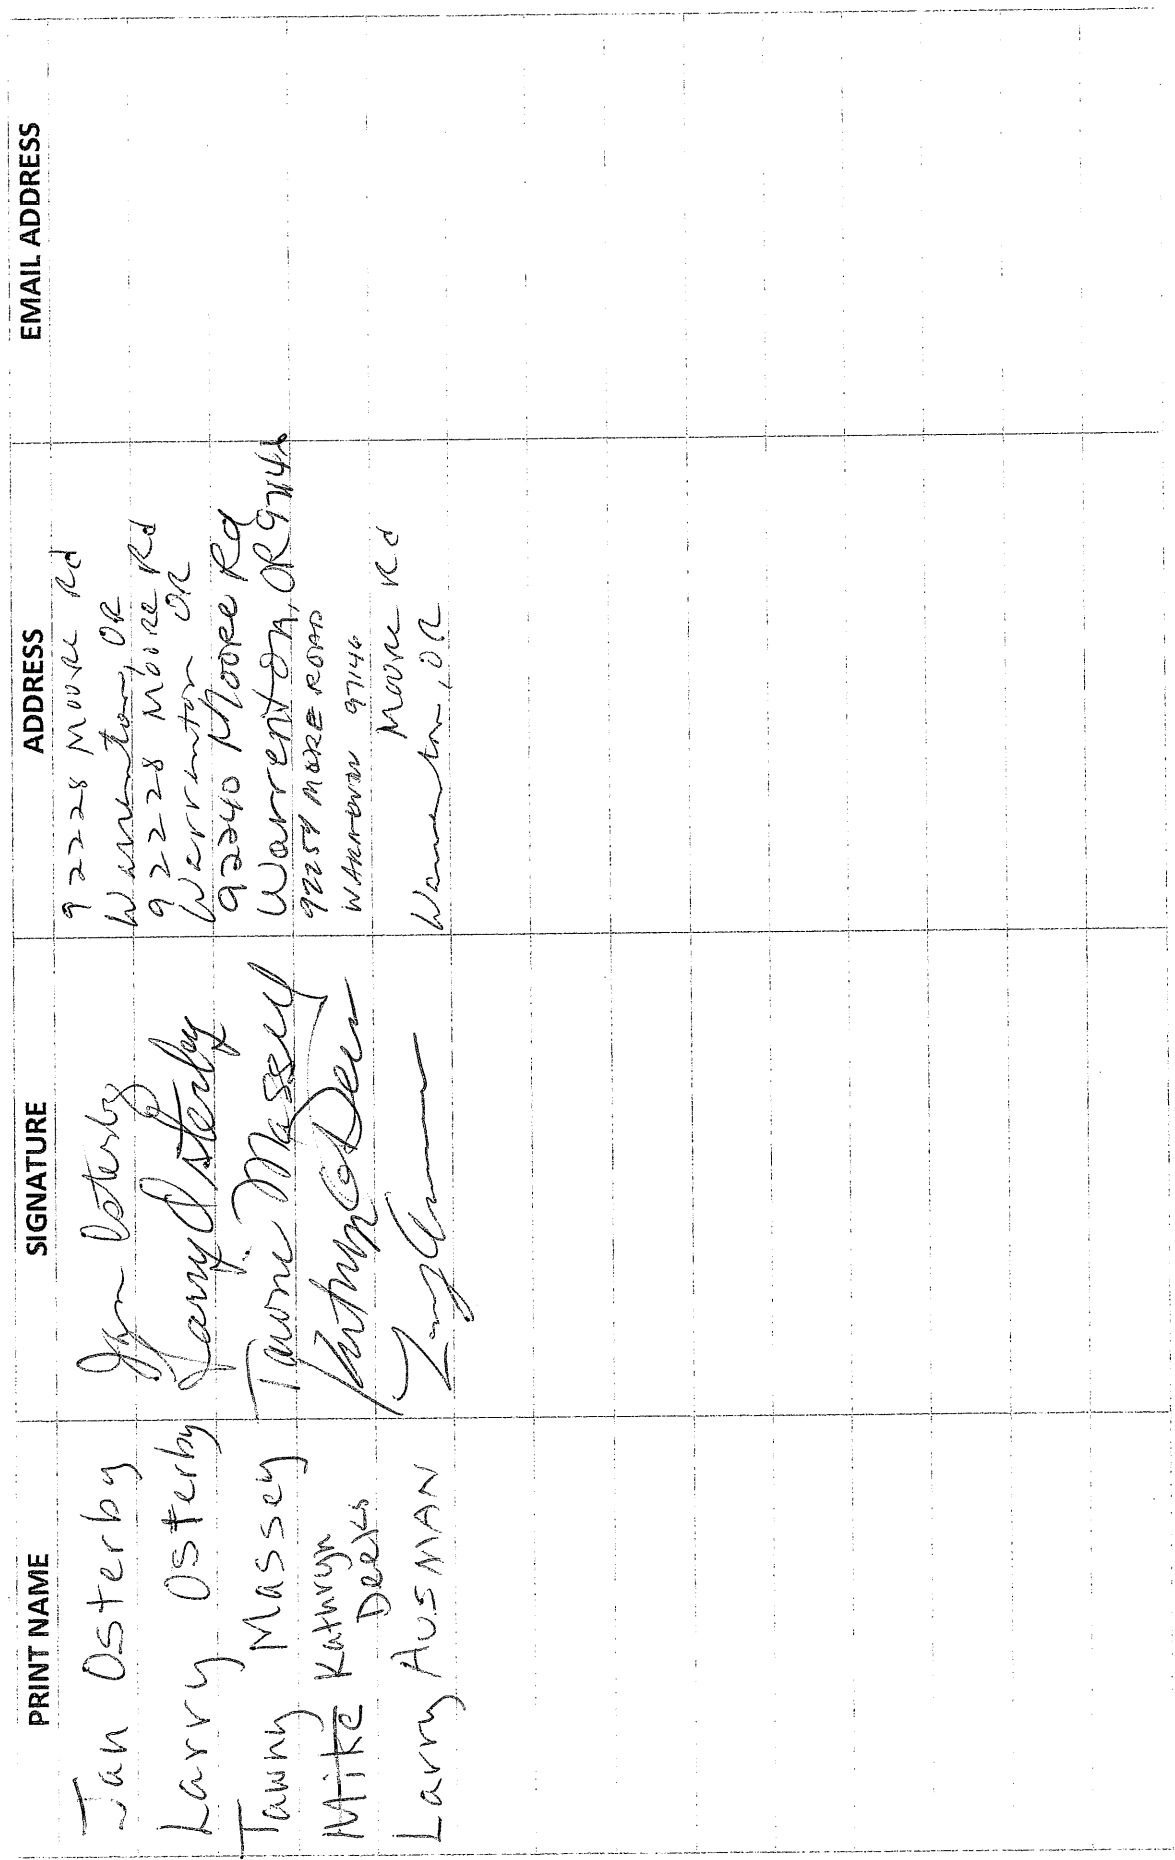 PRINT NAME SIGNATURE ADDRESS EMAIL ADDRESS
Jan Osterby Jan Osterby 92228 Moore Rd
Warrenton, OR
Larry Osterby Larry Osterby 92228 Moore Rd
Warrenton OR
Tawny Massey Tawni Massey 92240 Moore Rd
Warrenton, OR 97146
Mike Kathryn Kathryn 92259 MOORE ROAD
Deeks WARRENTON 97146
Larry AUSMAN Larry Moore Rd
Warrenton, OR